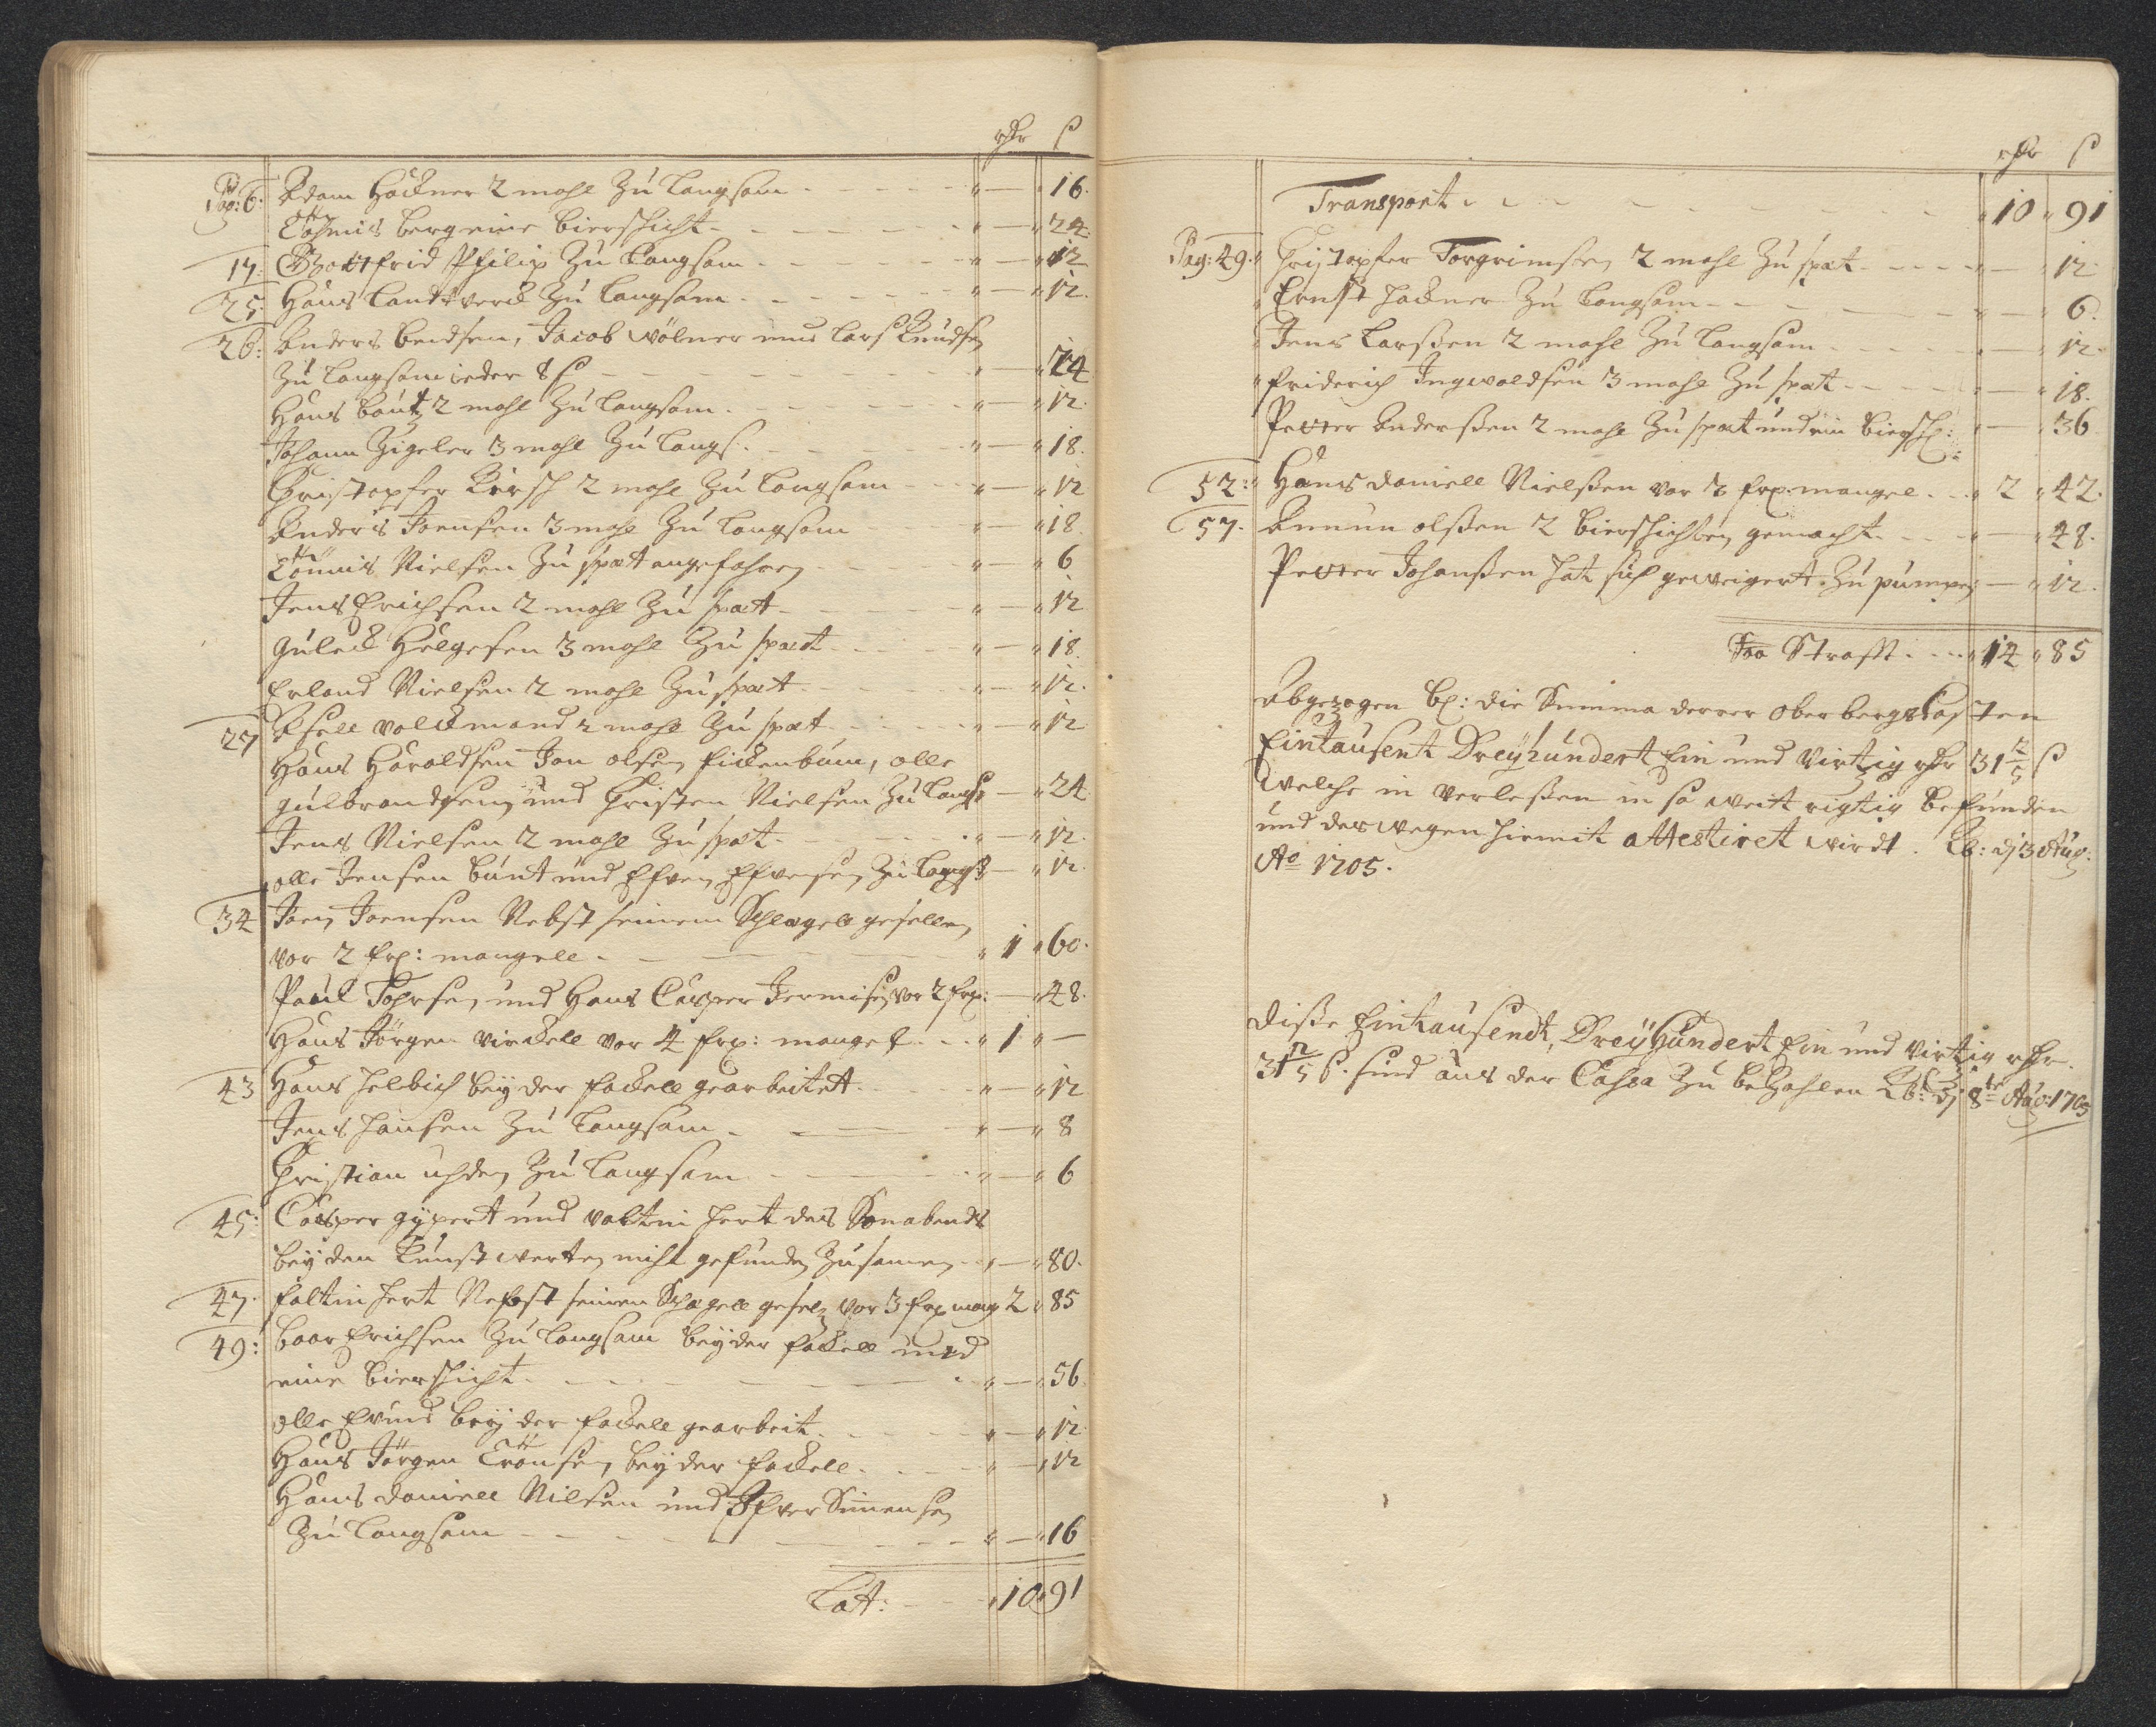 rthr ß
Pag: 6. Adam Häckner 2 mahl Zu langsam - - - " — " 16.
Tönnis berg eine bierschicht - - - " — " 24.
17. Gottfrid Philip Zu langsam - - - " — " 12
25. Hans landtverck Zu langsam - - - " — " 12.
26: Anders bendsen, Jacob Wölner und Lars Knudsen
Zu langsam ieder 8 ß - - - " — " 24
Hans bautz 2 mahl Zu langsam - - - " — " 12.
Johann Zigeler 3 mahl Zu langs. - - - " — " 18.
Christopfer Kirsch 2 mahl Zu langsam - - - " — " 12
Anders Joensen 3 mahl Zu langsam " — " 18.
Tönnis Nielsen Zu spæt angefahren - - - " — " 6
Jens Erichsen 2 mahl Zu spæt - - - " — " 12
Gulick Helgesen 3 mahl Zu spæt - - - " — " 18.
Erland Nielsen 2 mahl Zu spæt - - - " — " 12.
27 volckmand 2 mahl Zu spæt - - - " — " 12
Hans Haraldsen Jon olsen fickenbaum, olle
gulbrandsen und Christen Nielsen Zu langs — " 24
Jens Nielsen 2 mahl Zu spæt - - - " — " 12.
olle Jensen bunt und Zu langs — " 12.
34 Joen Joensen Nebst seinem Schlægell gesellen
vor 2 frp: mangell - - - " 1 " 60.
Paul und Hans Casper vor 2 frp: — " 48.
Hans Jörgen vinckell vor 4 frp: mangel - - - " 1 " —
43 Hans helbich beÿ der fackell gearbeitet - - - " — " 12
Jens Hansen Zu langsam - - - " — " 8
Christian uhden Zu langsam - - - " — " 6
45: Casper gÿpert und valtin hert des Sonabends
beÿ den Kunst nicht gefunden Zusamen - - - " — " 80.
47. faltin hert Nebst seinen Schægell vor 3 frp mang 2 " 85
49: boar Erichsen Zu langsam beÿ der fackell und
eine bierschicht - - - " — " 56
olle Evind beÿ der fackell gearbeit - - - " — " 12
Hans Jörgen Trönsen beÿ der fackell - - - " — " 12
Hans daniell Nilsen und Ifver Simensen
Zu langsam - - - " — " 16
Lat: - - - " 10 " 91
rthr ß
Transport - - - " 10 " 91
Pag: 49. Christopfer Torgrimsen 2 mahl Zu spæt - - - " — " 12.
Ernst Hackner Zu langsam - - - " — " 6.
Jens Larßen 2 mahl Zu langsam - - - " — " 12.
friderich Ingwaldsen 3 mahl Zu spæt - - - " — " 18.
Petter Anderßen 2 mahl Zu spæt und ein biersch: " — " 36
52: Hans daniell Nielßen vor 2 frp: mangel - - - " 2 " 42.
57. olßen 2 bierschichten gemacht - - - " — " 48.
Petter Johanßen hat sich geweigert Zu pumpen — " 12.
Straff - - - " 14 " 85
Abgezogen bl: die Summa derer ober bergs Kasten
Eintausent Dreÿhundert Ein und Virtzig rthr 31 12/5 ß
Welche in Verleßen in so weit rigtig befunden
und deswegen hiemit attestiret wirdt. Kb: dj 3 Aug:
Ao 1705.
Diße Eintausendt, Dreÿhundert Ein und Virtzig rthr.
31 12/5 ß. sind aus der Cassa Zu bezahlen Kb: dj 8te Aug: 1705